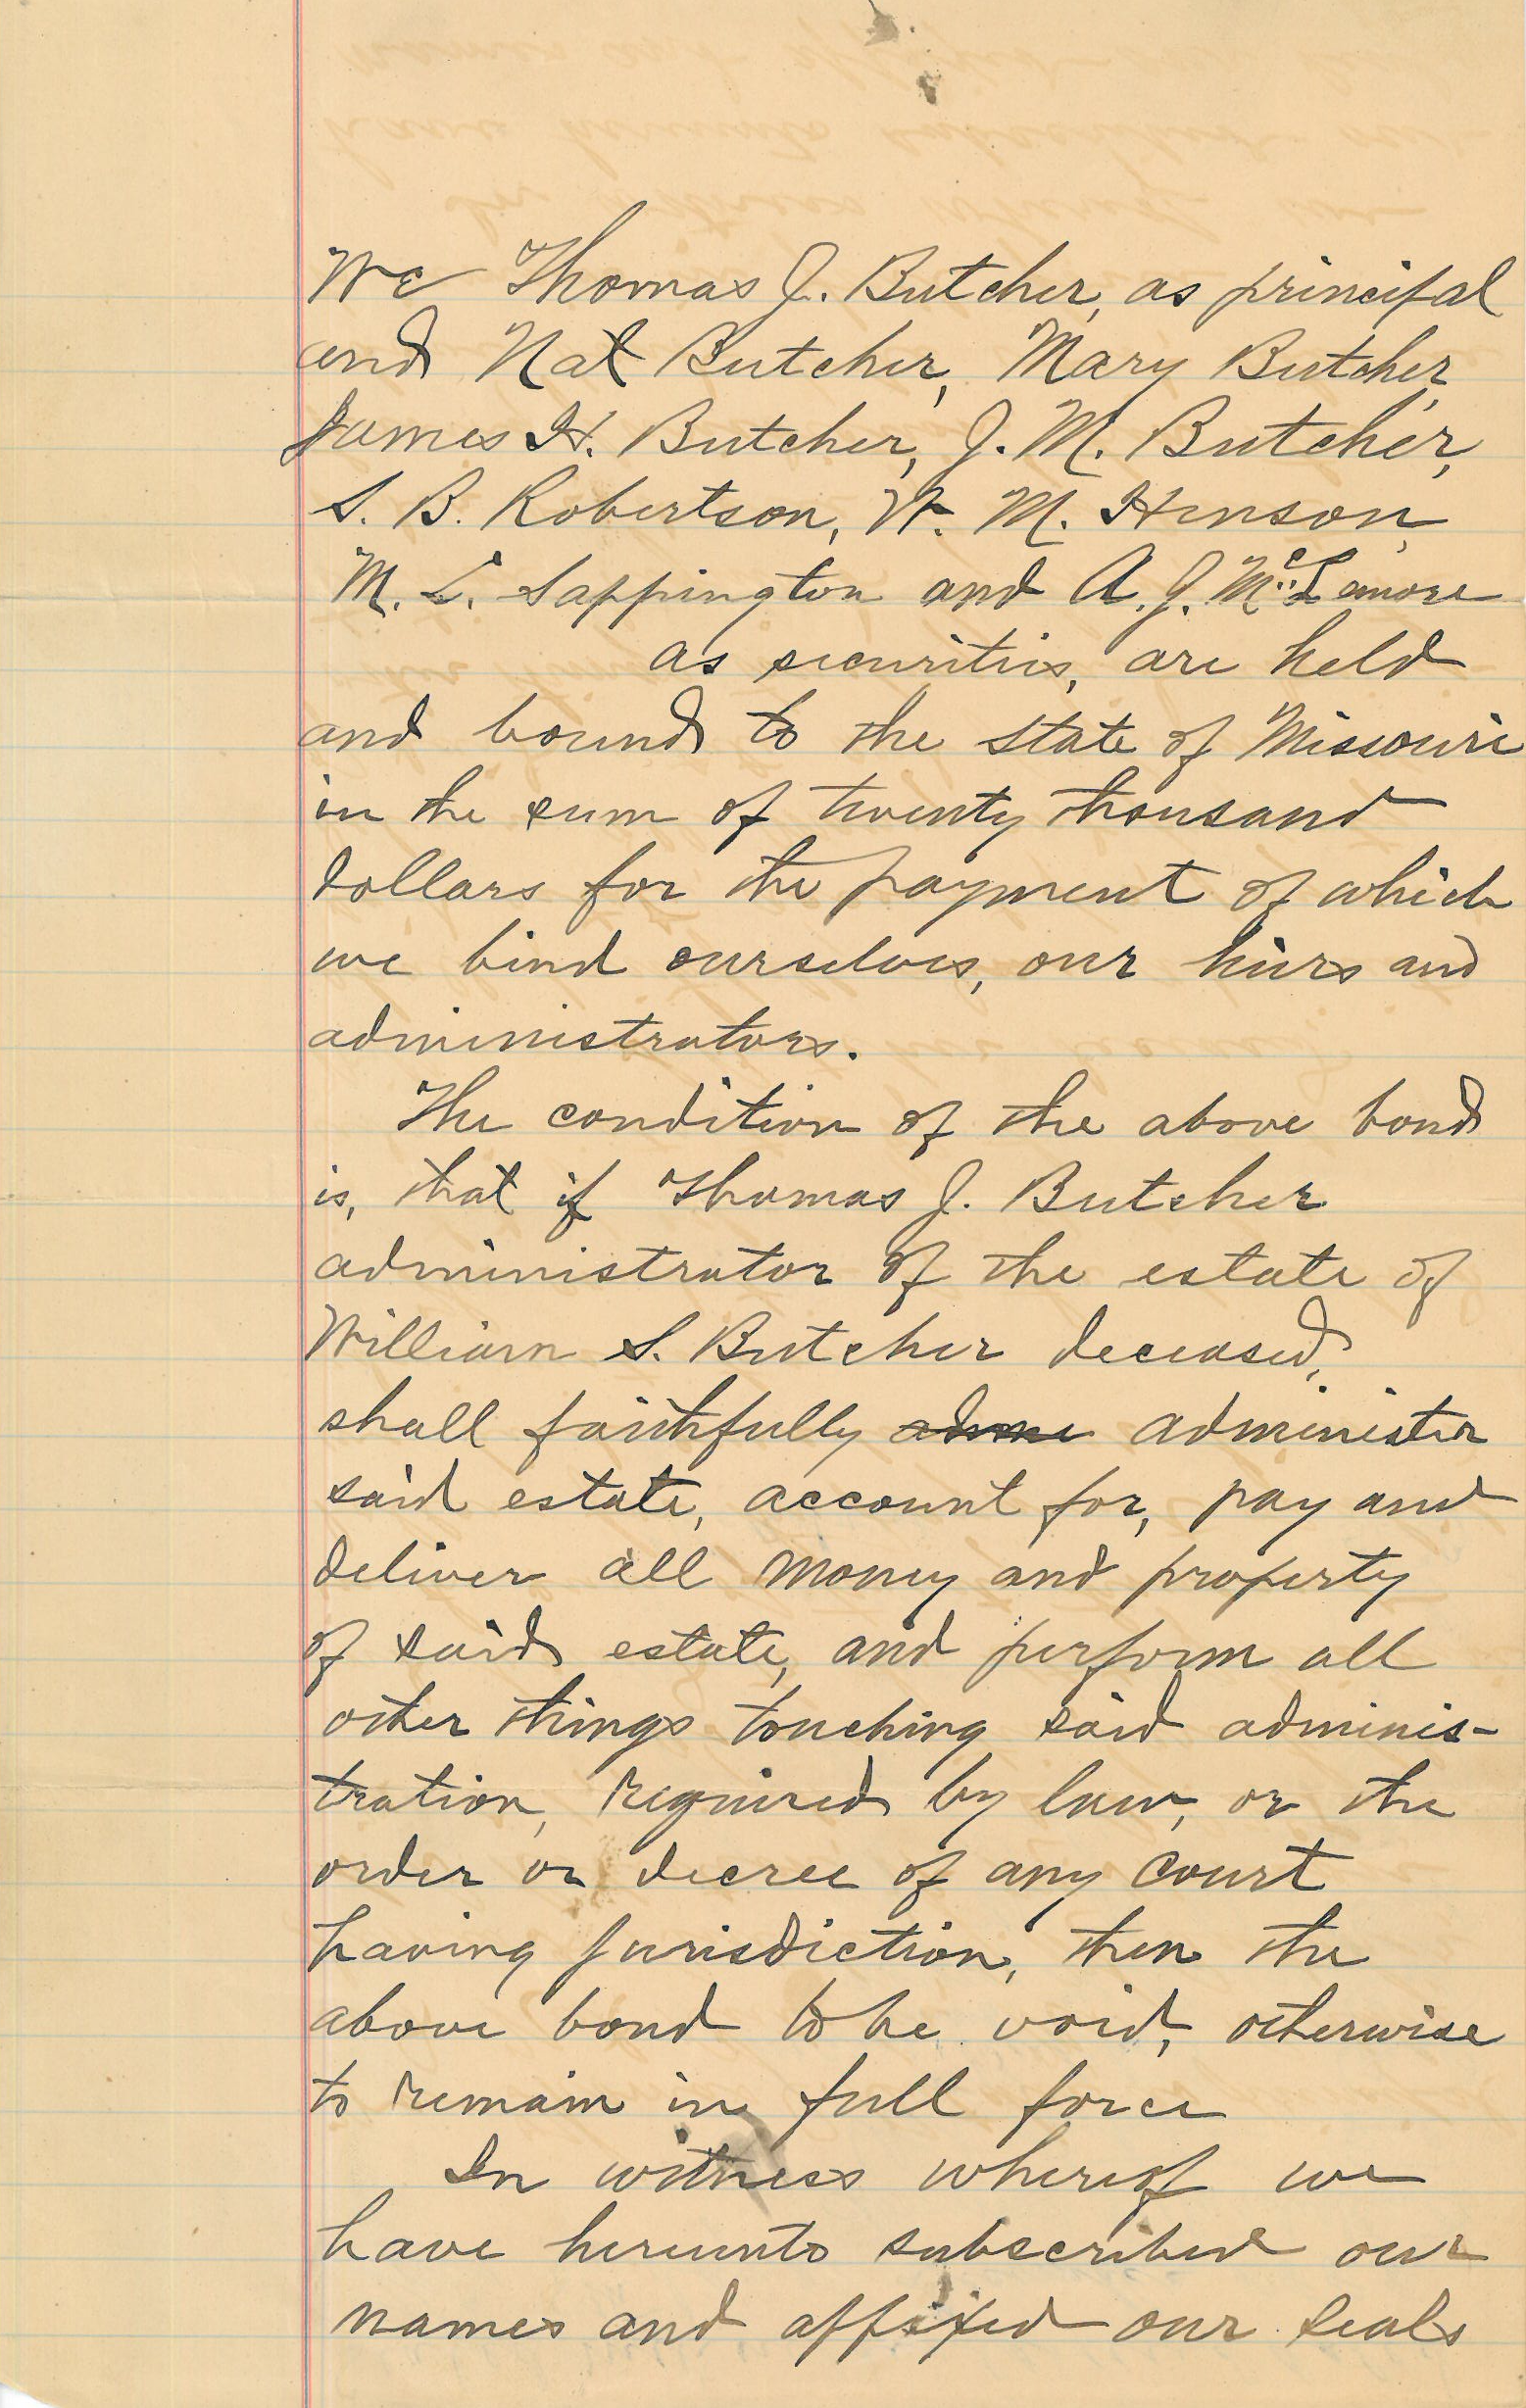 We Thomas J. Butcher, as principal
and Nat Butcher, Mary Butcher,
James H. Butcher, J. M. Butcher,
S. B. Robertson, W. M. Henson,
M. L. Sappington and A. J. McLemore
as securities, are held
and bound to the state of Missouri
in the sum of twenty thousand
dollars for the payment of which
we bind ourselves, our heirs and
administrators.
The condition of the above bond
is, that if Thomas J. Butcher
administrator of the estate of
William S. Butcher deceased,
shall faithfully administer
said estate, account for, pay and
deliver all money and property
of said estate, and perform all
other things touching said adminis-
tration, required by law, or the
order or decree of any court
having jurisdiction, then the
above bond to be void, otherwise
to remain in full force
In witness whereof we
have hereunto subscribed our
names and affixed our seals